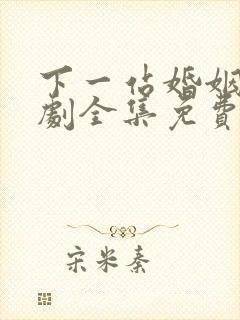 下一站婚姻
劇全集免費
宋米秦